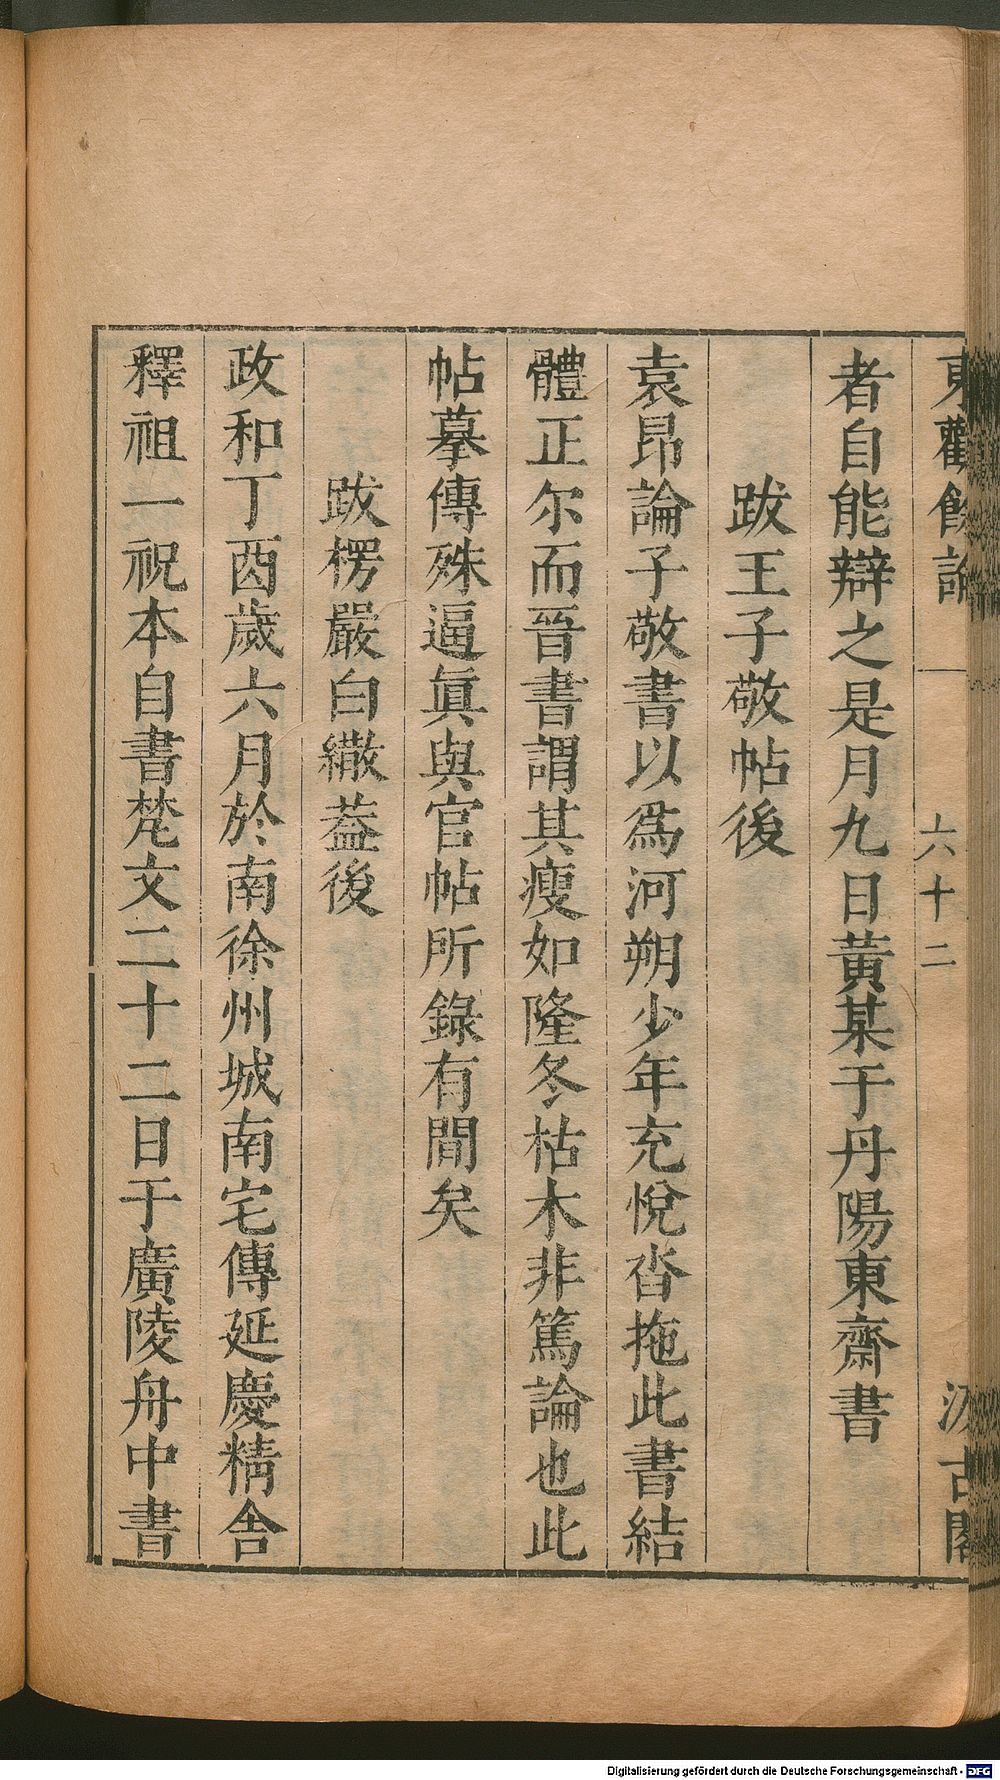 東觀餘論
六十二
汲古閣
者自能辯之是月九日黃某于丹陽東齋書
跋王子敬帖後
袁昂論子敬書以爲河朔少年充悅沓拖此書結
體正尔而晉書謂其瘦如隆冬枯木非篤論也此
帖摹傳殊逼眞與官帖所錄有間矣
跋楞嚴白繖蓋後
政和丁酉歲六月於南徐州城南宅傳延慶精舍
釋祖一祝本自書梵文二十二日于廣陵舟中書
Digitalisierung gefördert durch die Deutsche Forschungsgemeinschaft - DFG